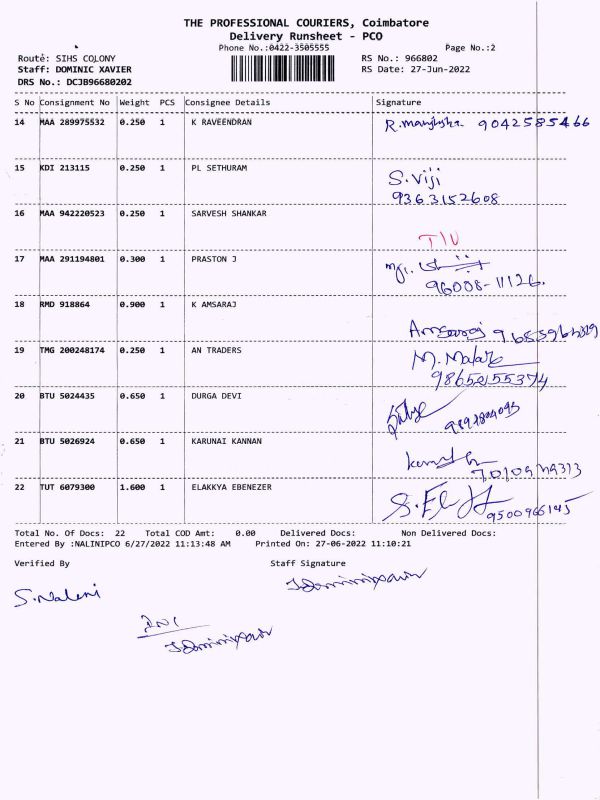 THE PROFESSIONAL COURIERS, Coimbatore
Delivery Runsheet - PCO
Phone No.:0422-3505555 Page No.:2
Route: SIHS COLONY RS No.: 966802
Staff: DOMINIC XAVIER RS Date: 27-Jun-2022
DRS No.: DCJB96680202
S No Consignment No Weight PCS Consignee Details Signature
14 MAA 289975532 0.250 1 K RAVEENDRAN 9042585466
15 KDI 213115 0.250 1 PL SETHURAM S.Viji
9363152608
16 MAA 942220523 0.250 1 SARVESH SHANKAR
17 MAA 291194801 0.300 1 PRASTON J
96008-11126.
18 RMD 918864 0.900 1 K AMSARAJ
19 TMG 200248174 0.250 1 AN TRADERS
20 BTU 5024435 0.650 1 DURGA DEVI
21 BTU 5026924 0.650 1 KARUNAI KANNAN
22 TUT 6079300 1.600 1 ELAKKYA EBENEZER
9500966145
Total No. Of Docs: 22 Total COD Amt: 0.00 Delivered Docs: Non Delivered Docs:
Entered By :NALINIPCO 6/27/2022 11:13:48 AM Printed On: 27-06-2022 11:10:21
Verified By Staff Signature
S.Nalini